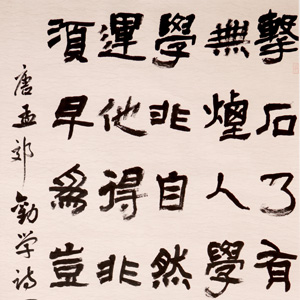 擊石乃有
無煙人學
學非自然
運他得非
須早爲豈
唐孟郊勸学詩